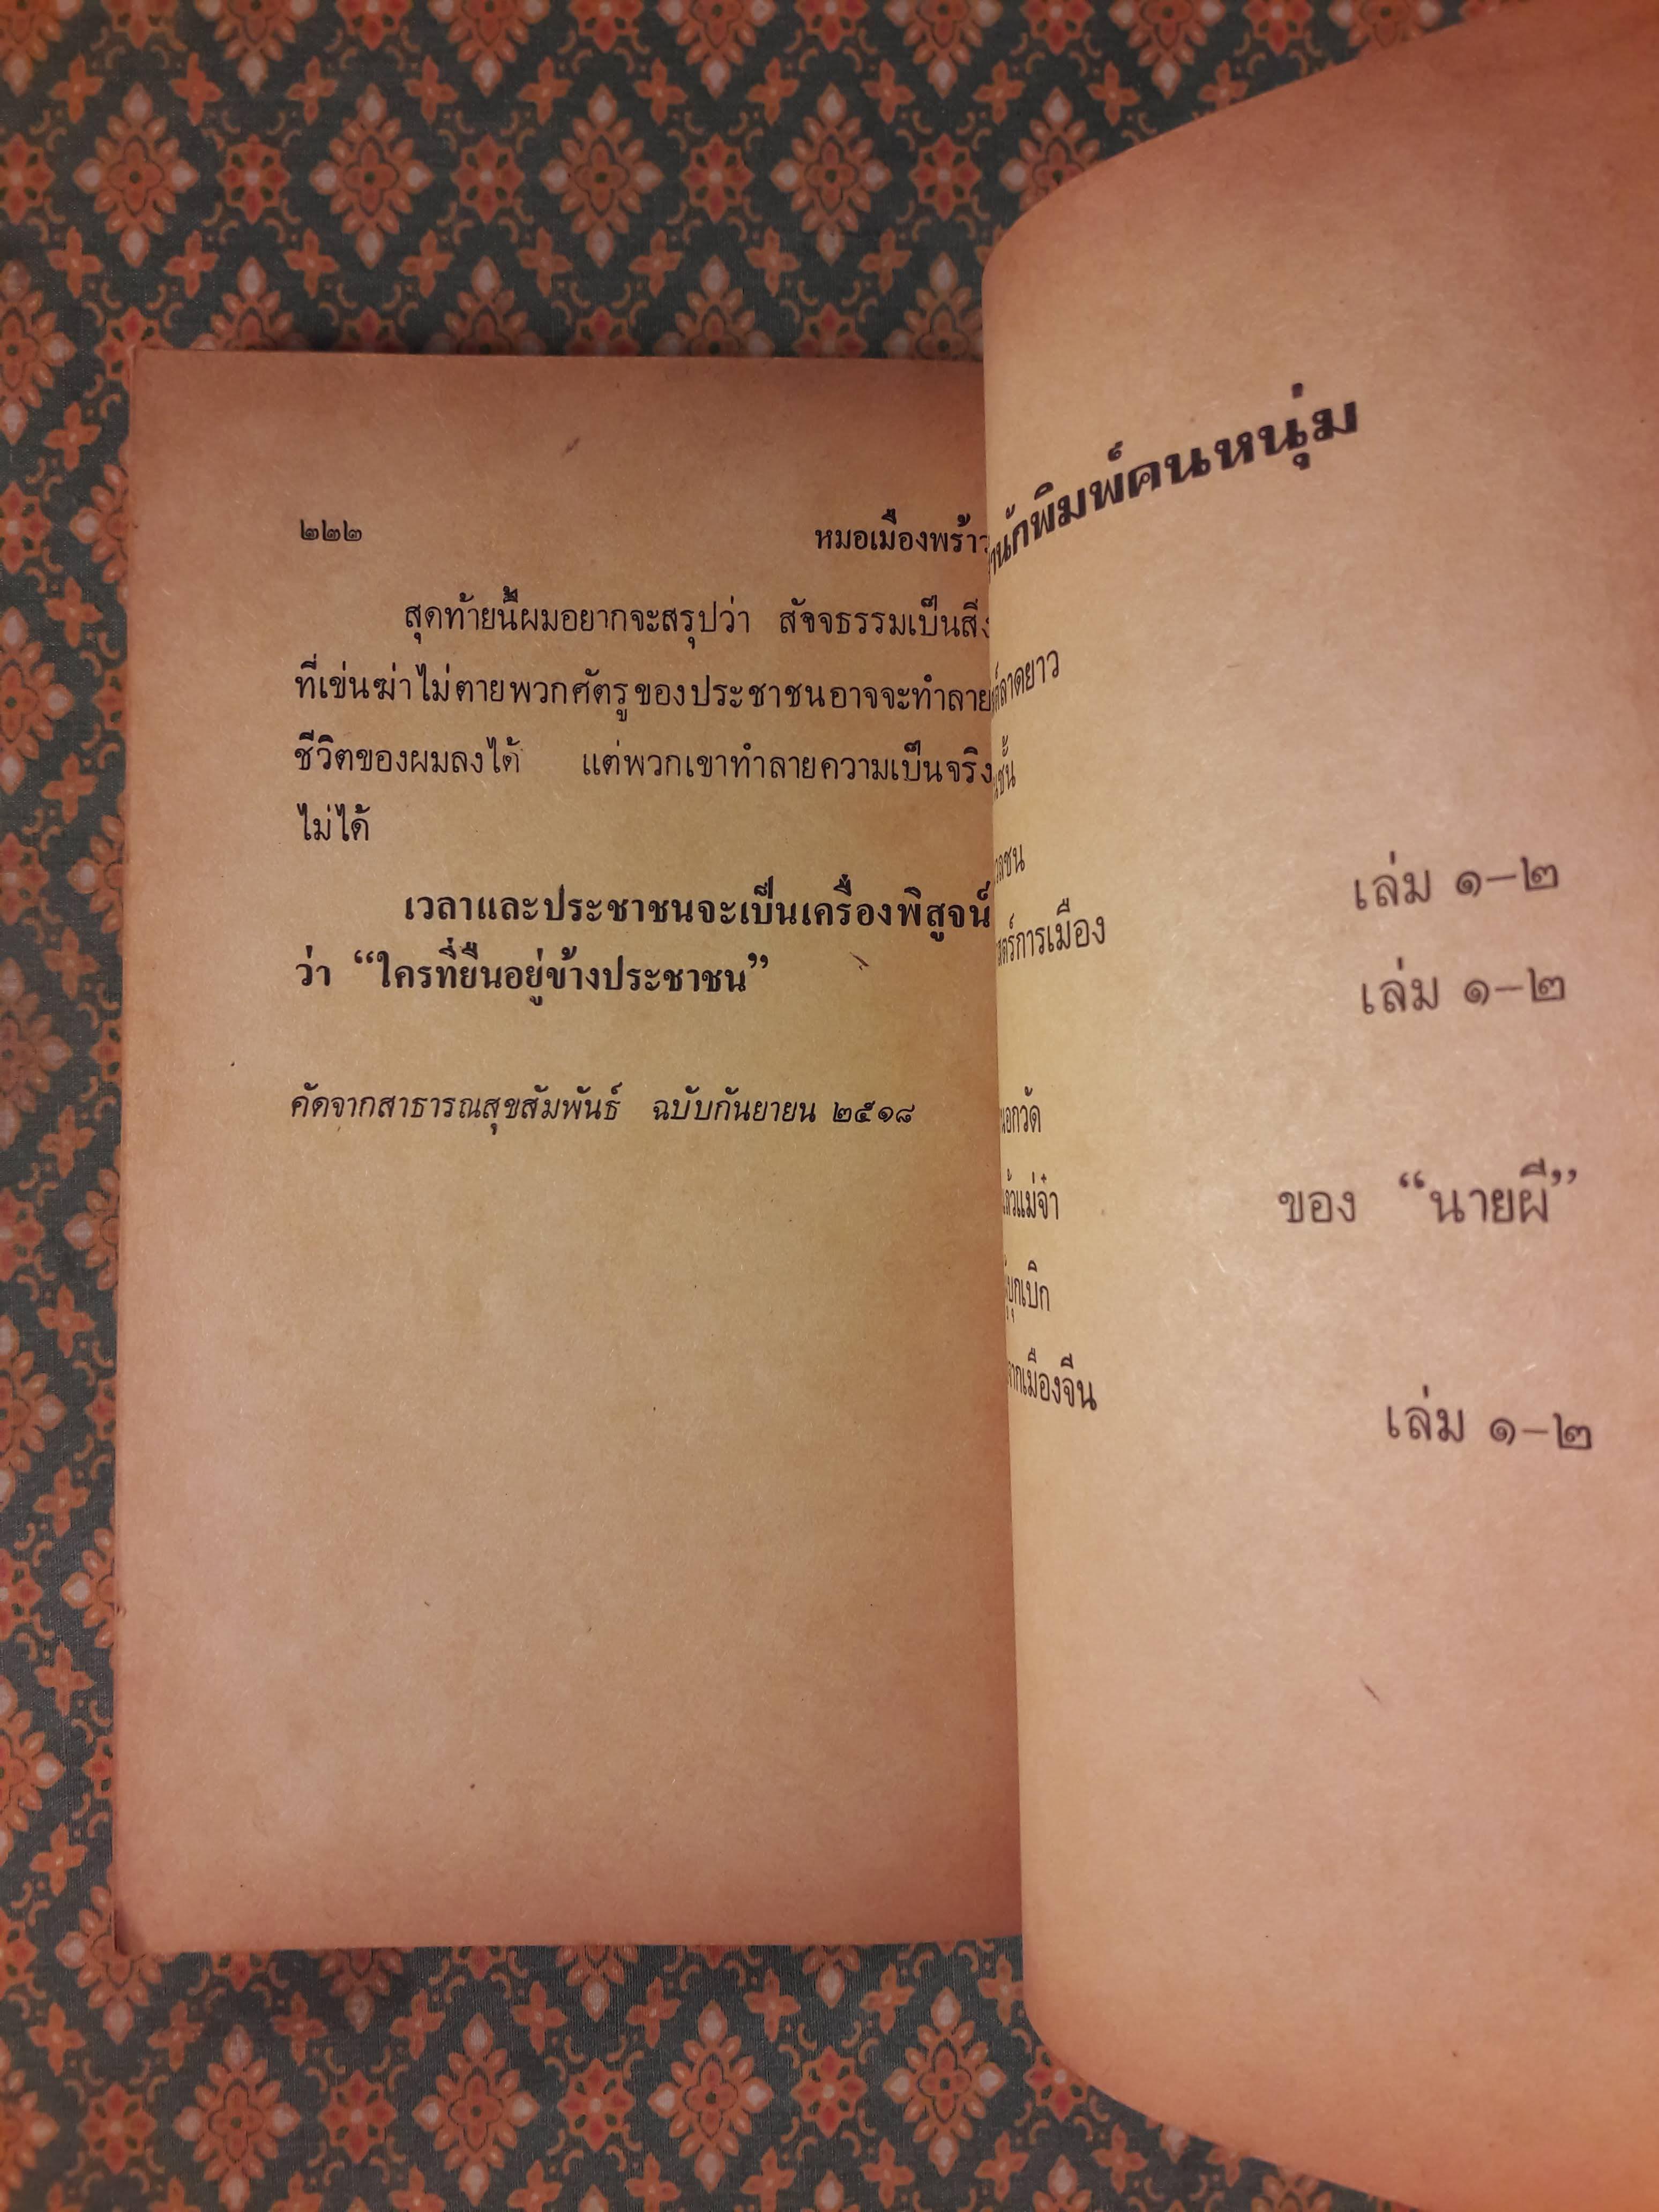 ๒๒๒ หมอเมืองพร้าว
สุดท้ายนี้ผมอยากจะสรุปว่า สัจจธรรมเป็นสิ่ง
ที่เข่นฆ่าไม่ตายพวกศัตรูของประชาชนอาจจะทำลาย
ชีวิตของผมลงได้ แต่พวกเขาทำลายความเป็นจริง
ไม่ได้
เวลาและประชาชนจะเป็นเครื่องพิสูจน์
ว่า “ใครที่ยืนอยู่ข้างประชาชน”
คัดจากสาธารณสุขสัมพันธ์ ฉบับกันยายน ๒๕๑๘
านักพิมพ์คนหนุ่ม
ลาดยาว
เล่ม ๑-๒
การเมือง เล่ม ๑-๒
นอกวัด
แล้วแม่จ๋า ของ “นายผี”
บุกเบิก
จากเมืองจีน เล่ม ๑-๒